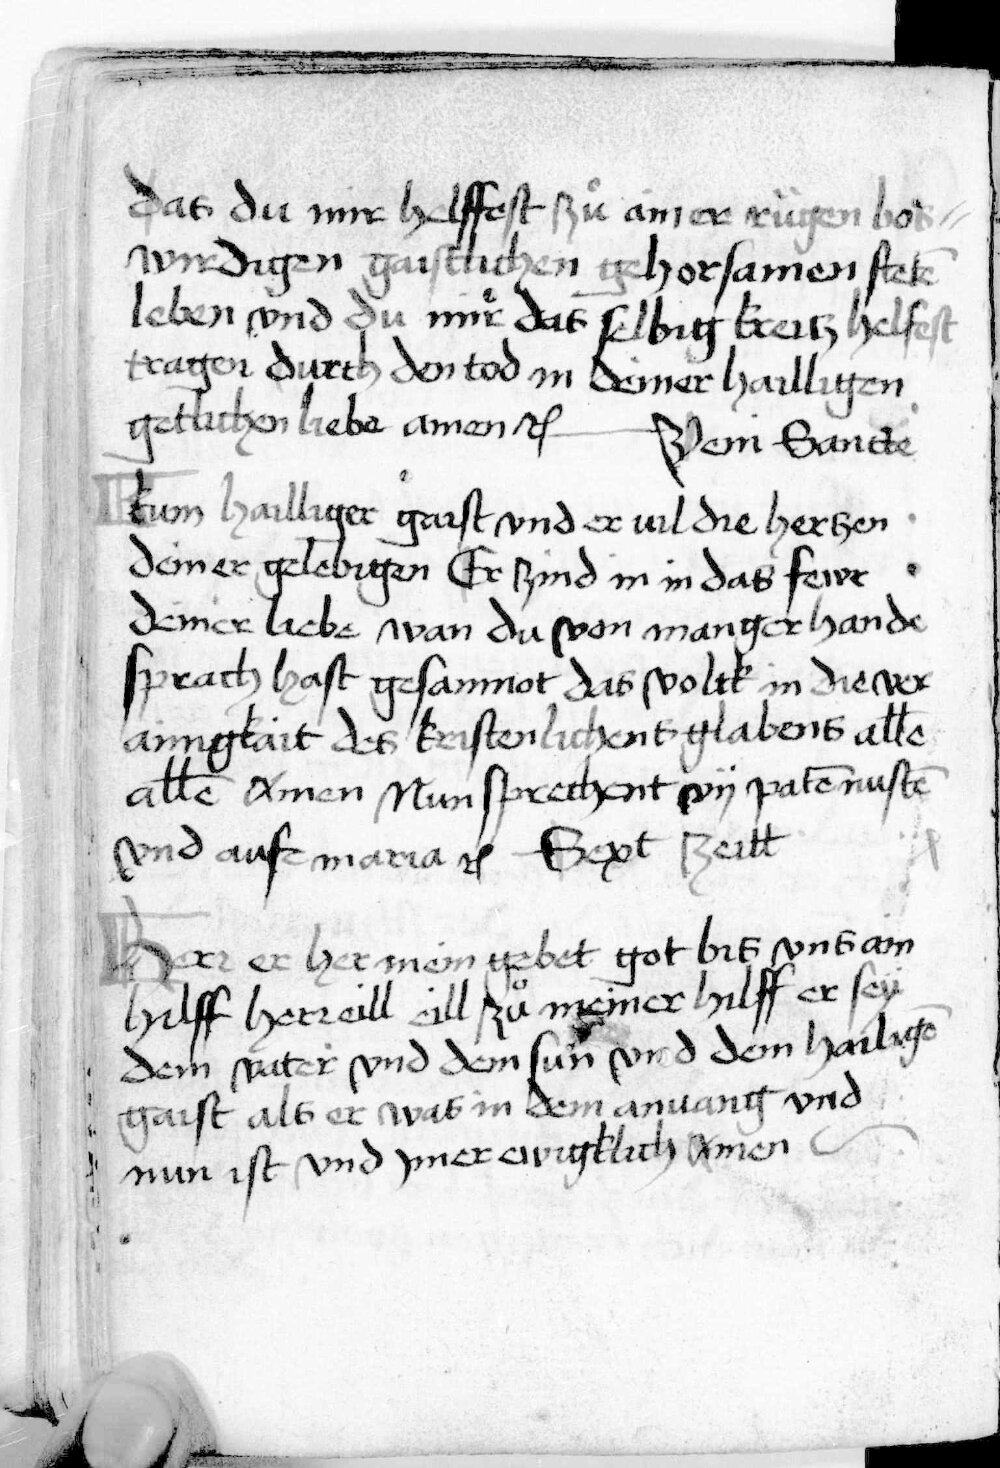 das du mir helffest zů ainer rügen bos-
wirdigen gaistlichen gehorsamen stetē
leben vnd du mir das selbig kreitz helfest
tragen durch den tod in deiner hailligen
getlichen liebe amen ꝛc Veni Sancte
kum hailliger gaist vnd er vil die hertzen
deiner gelebigen Er zind in in das fewr
deiner liebe wan du von manger hande
sprach hast gesamnot das volck in die ver
ainigkait des kristenlichens glabens alle
alle Amen Nun sprechent vij patē nustē
vnd aufe maria ꝛc Sext zeill
Herr er her mein gebet got bis vns ain
hilff herr eill eill zů meiner hilff er seÿ
dem vater vnd dem sun vnd dem hailigē
gaist als er was in dem anuang vnd
nun ist vnd ymer ewigklich Amen